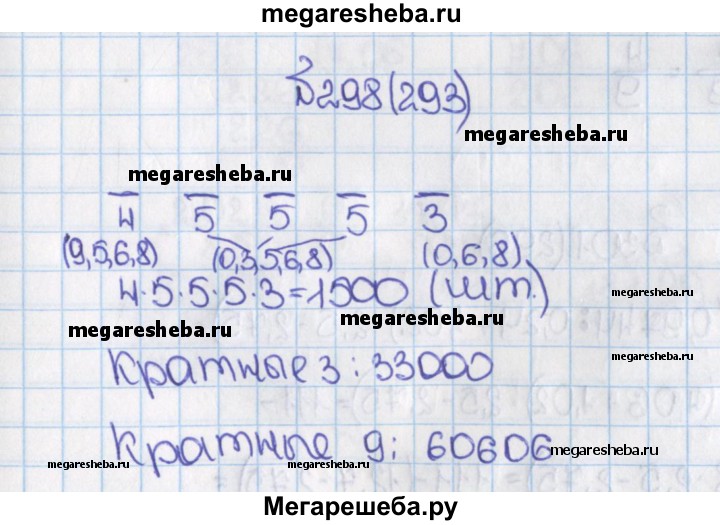 megaresheba.ru
№298(293)
megaresheba.ru
megaresheba.ru
4 5 5 5 3
(9,5,6,8) (0,3,5,6,8) (0,6,8)
4·5·5·5·3=1500 (шт.)
megaresheba.ru
megaresheba.ru
megaresheba.ru
Кратные 3: 33000
megaresheba.ru
Кратные 9: 60606
megaresheba.ru
megaresheba.ru
megaresheba.ru
Мегарешеба.ру